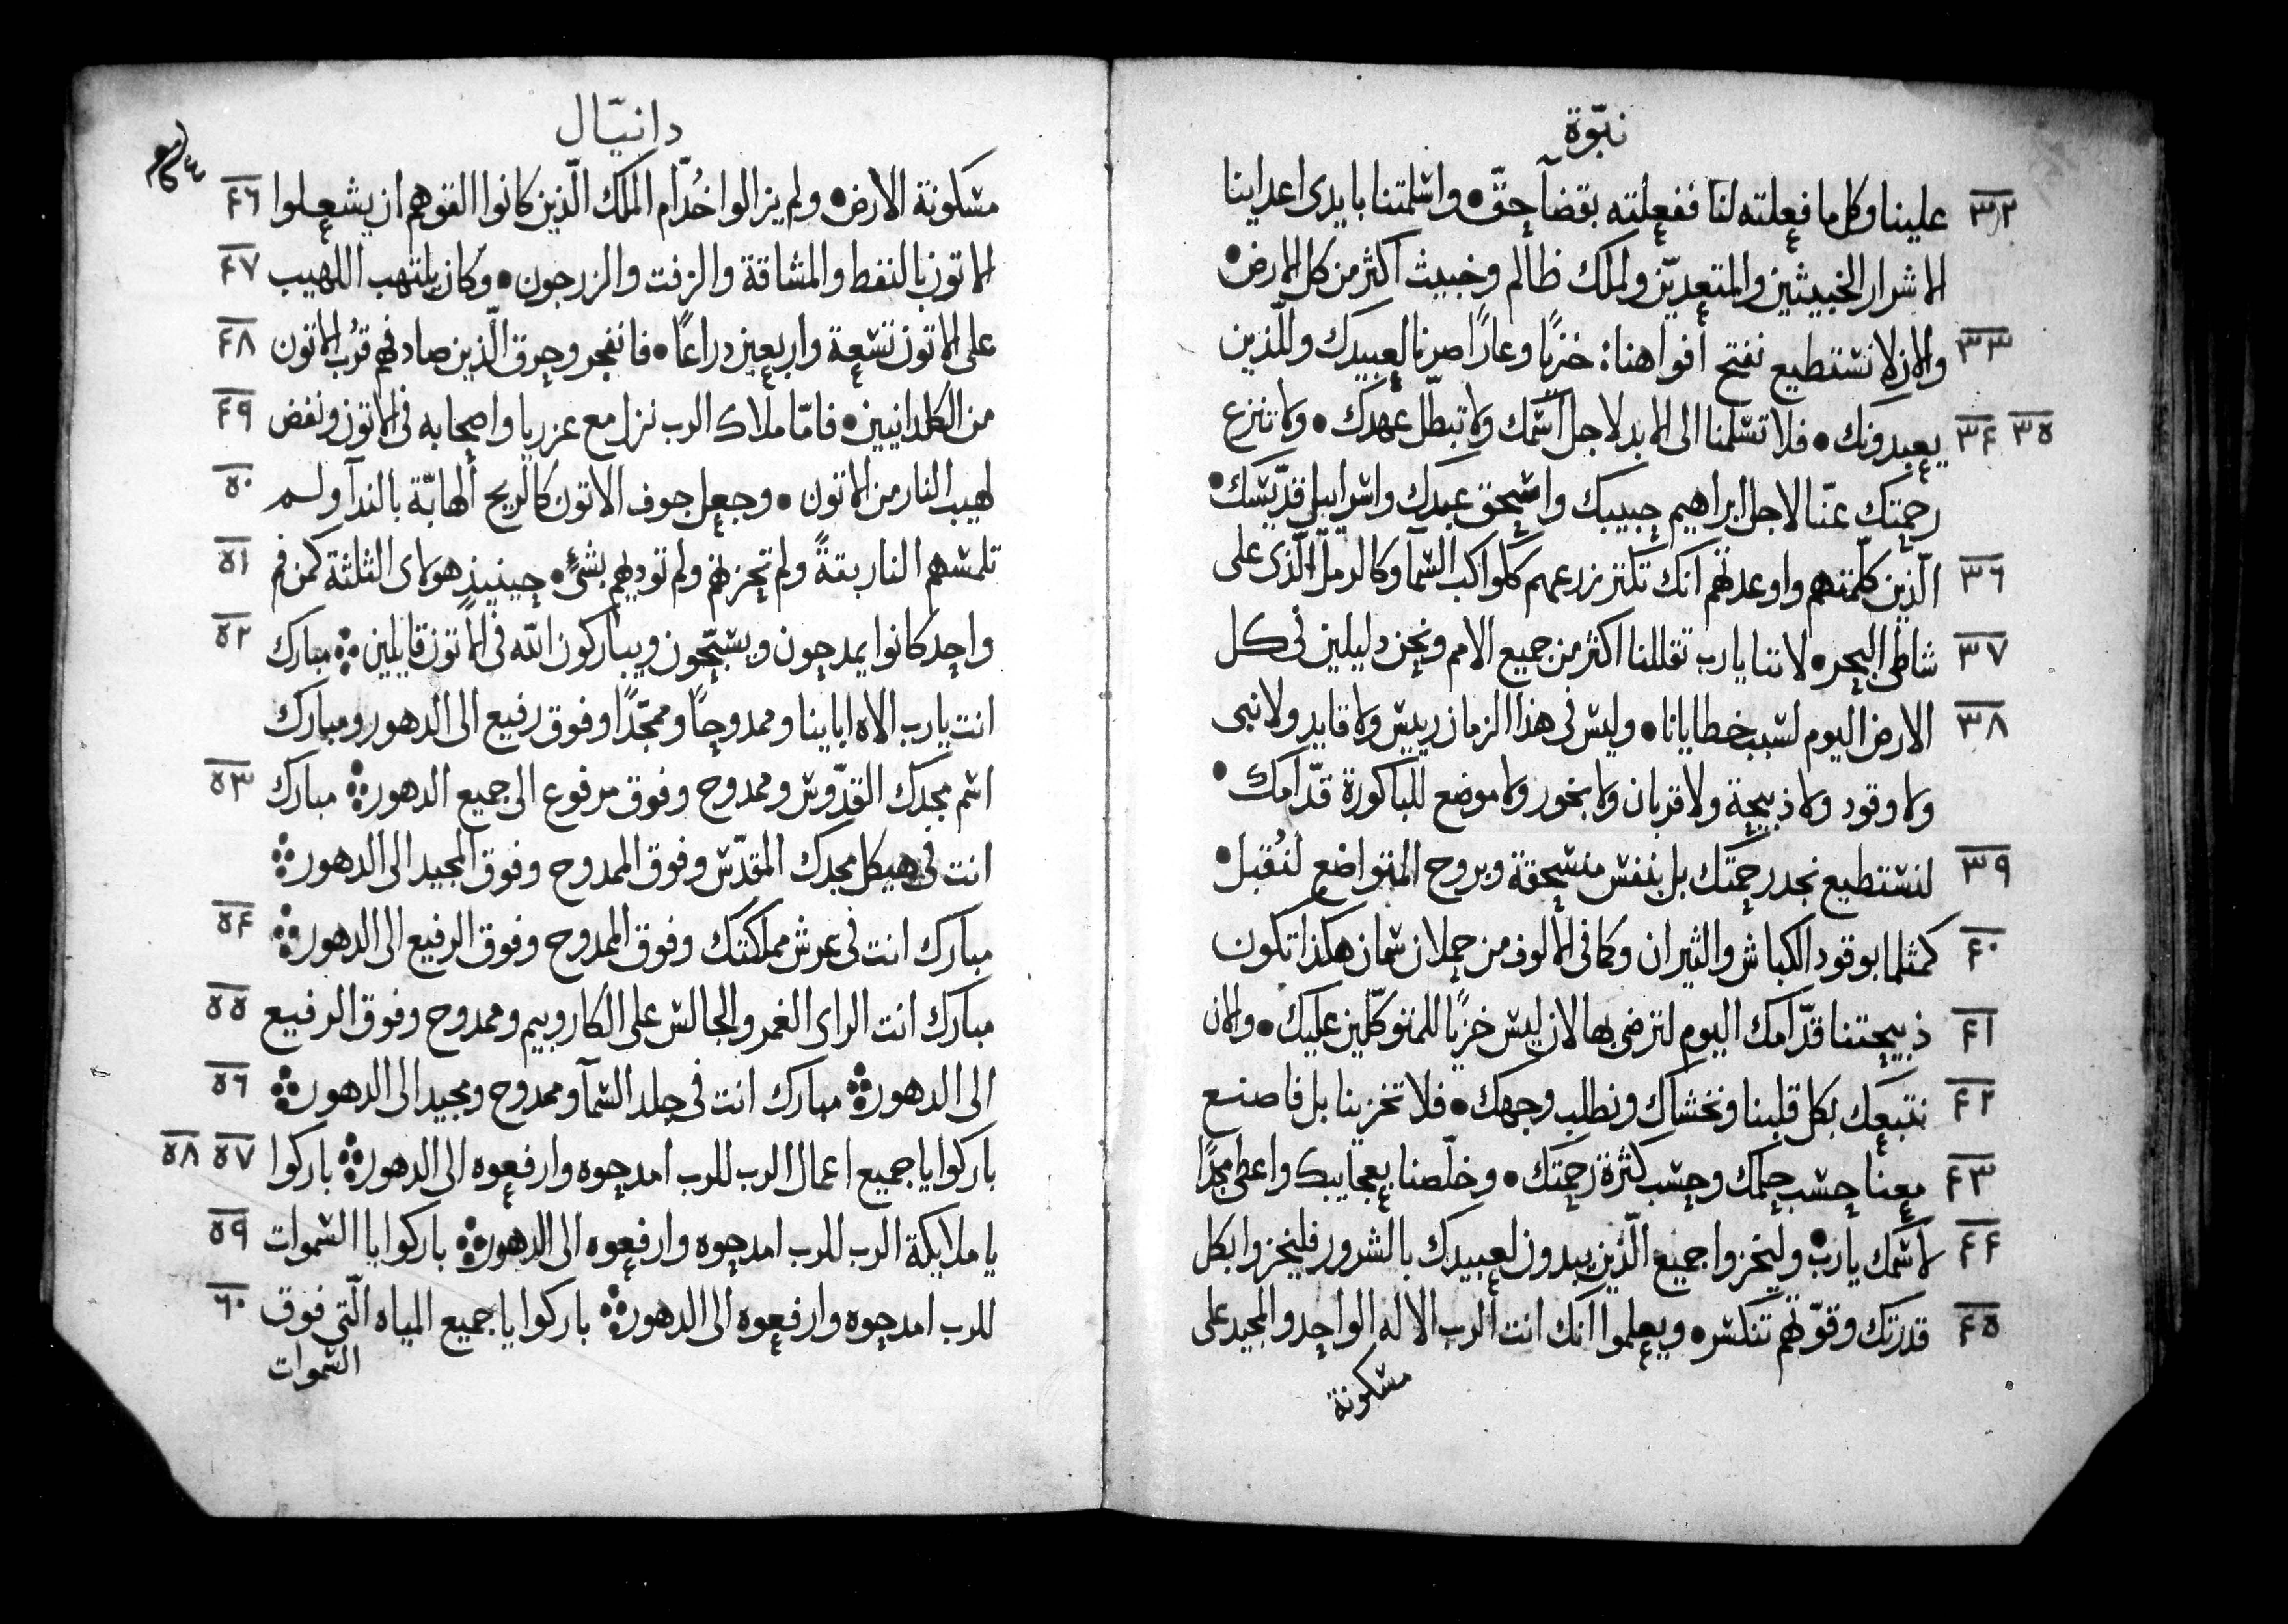 نبّوة
٣٢ علينا وكل ما فعلته لنا ففعلته بقضآ حقّ • واسلمتنا بايدى اعداينا
الاشرار الخبيثين والمتعديّن ولملك ظالم وخبيث اكثر من كل الارض •
٣٣ والان لا نستطيع نفتح أفواهنا: خزيًا وعارًا صرنا لعبيدك وللّذين
٣٤ ٣٥ يعبدونك • فلا تسلمنا الى الابد لاجل اسمك ولا تبطّل عهدك • ولا تنزع
رحمتك عنّا لاجل ابراهيم حبيبك واسحق عبدك واسراييل قدّيسك •
٣٦ الّذين كلّمتهم واوعدتهم انك تكتر زرعهم كلواكب السّمآ وكالرمل الّذى على
٣٧ شاطى البحر • لاننا يارب تقاللنا اكثر من جميع الامم ونحن دليلين فى كل
٣٨ الارض اليوم لسبب خطايانا • وليس فى هذا الزمان رييس ولا قايد ولا نبى
ولا وقود ولا ذبيحة ولا قربان ولا بخور ولا موضع للباكورة قدّامك •
٣٩ لنستطيع نجد رحمتك بل بنفس منسحقة وبروح المتواضع لنُقبل •
٤٠ كمثلما بوقود الكباش والثيران وكما فى الالوف من حملان سمان هكذا تكون
٤١ ذبيحتنا قدّامك اليوم لترضى بها لان ليس خزيًا للمتوكّلين عليك • والان
٤٢ نتبعك بكل قلبنا ونخشاك ونطلب وجهك • فلا تخزينا بل فاصنع
٤٣ معنا حسب حلمك وحسب كثرة رحمتك • وخلّصنا بعجايبك واعطى مجدًا
٤٤ لاسمك يارب • وليخزوا جميع الّذين يبدون لعبيدك بالشرور فليخزوا بكل
٤٥ قدرتك وقوّتهم تنكسر • ويعلموا انّك انت الرب الاله الواحد والمجيد على
مسكونة
دانيّال
٤٦ مسكونة الارض • ولم يزالوا خُدّام الملك الّذين كانوا القوهم ان يشعلوا
٤٧ الاتون بالنفط والمشاقة والزفت والزرجون • وكان يلتهب اللهيب
٤٨ على الاتون تسعة واربعين دراعًا • فانفجر وحرق الّذين صادفهم قُرب الاتون
٤٩ من الكلدانيين • فامّا ملاك الرب نزل مع عزريا واصحابه فى الاتون ونفض
٥٠ لهيب النار من الاتون • وجعل جوف الاتون كالريح الهابّة بالندآ ولم
٥١ تلمسهم النار بتةً ولم تحزنهم ولم توديهم بشىءٍ • حينيذٍ هولاى الثلثة كمن فم
٥٢ واحد كانوا يمدحون ويسبّحون ويباركون الله فى الاتون قايلين ⁘ مبارك
انت يارب الاه اباينا وممدوحًا وممجّدًا وفوق رفيع الى الدهور ومبارك
٥٣ اسم مجدك القدّوس وممدوح وفوق مرفوع الى جميع الدهور ⁘ مبارك
انت فى هيكل مجدك المقدّس وفوق الممدوح وفوق المجيد الى الدهور ⁘
٥٤ مبارك انت فى عرش مملكتك وفوق الممدوح وفوق الرفيع الى الدهور ⁘
٥٥ مبارك انت الراى الغمر والجالس على الكاروبيم وممدوح وفوق الرفيع
٥٦ الى الدهور ⁘ مبارك انت فى جلد السّمآ وممدوح ومجيد الى الدهور ⁘
٥٧ ٥٨ باركوا يا جميع اعمال الرب للرب امدحوه وارفعوه الى الدهور ⁘ باركوا
٥٩ يا ملايكة الرب للرب امدحوه وارفعوه الى الدهور ⁘ باركوا يا السّموات
٦٠ للرب امدحوه وارفعوه الى الدهور ⁘ باركوا يا جميع المياه الّتى فوق
السّموات